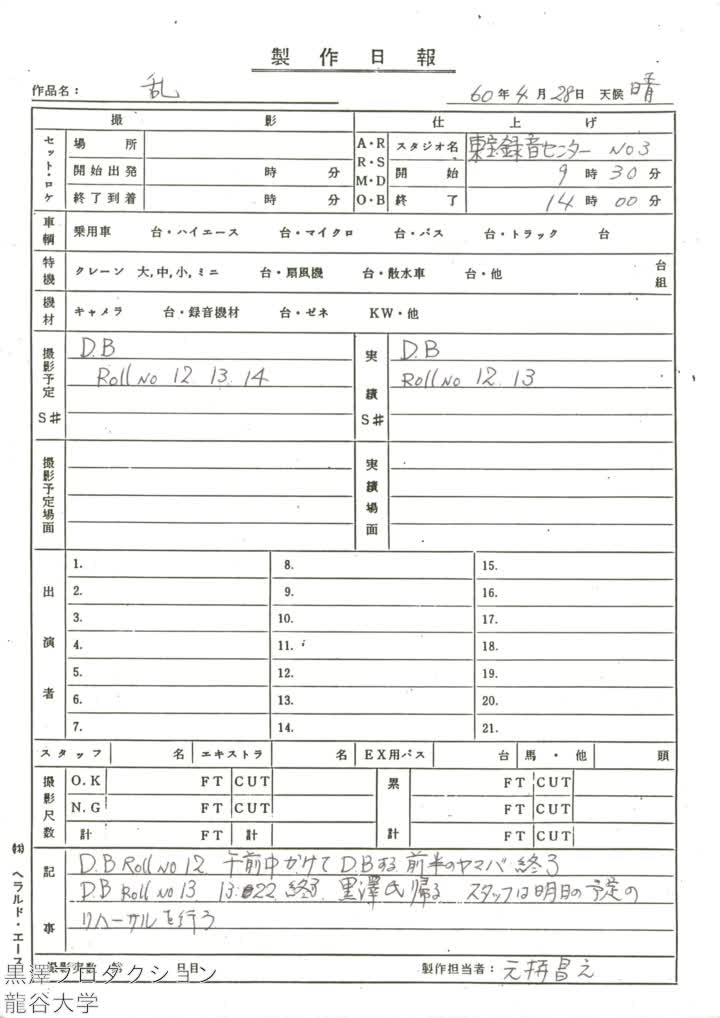 製作日報
作品名： 乱 60年4月28日 天候 晴
撮影 仕上げ
セット・ロケ 場所 A・R R・S M・D O・B スタジオ名 東宝録音センター No3
開始出発 時 分 開始 9時30分
終了到着 時 分 終了 14時00分
車輌 乗用車 台・ハイエース 台・マイクロ 台・バス 台・トラック 台
特機 クレーン 大,中,小,ミニ 台・扇風機 台・散水車 台・他 台組
機材 キャメラ 台・録音機材 台・ゼネ KW・他
撮影予定 S♯ D.B 実績 S♯ D.B
Roll No 12 13 14 Roll No 12. 13
撮影予定場面 実績場面
出演者
1. 8. 15.
2. 9. 16.
3. 10. 17.
4. 11. 18.
5. 12. 19.
6. 13. 20.
7. 14. 21.
スタッフ 名 エキストラ 名 EX用バス 台 馬・他 頭
撮影尺数 O.K FT CUT 累計 FT CUT
N.G FT CUT FT CUT
計 FT 計 FT CUT
記事 D.B Roll No 12. 午前中かけてD.Bする 前半のヤマバ 終了
D.B Roll No 13 13:22 終了. 黒澤氏帰る スタッフは明日の予定の
リハーサルを行う
撮影実数 第 日目 製作担当者：
㈱ヘラルド・エース
黒澤プロダクション
龍谷大学